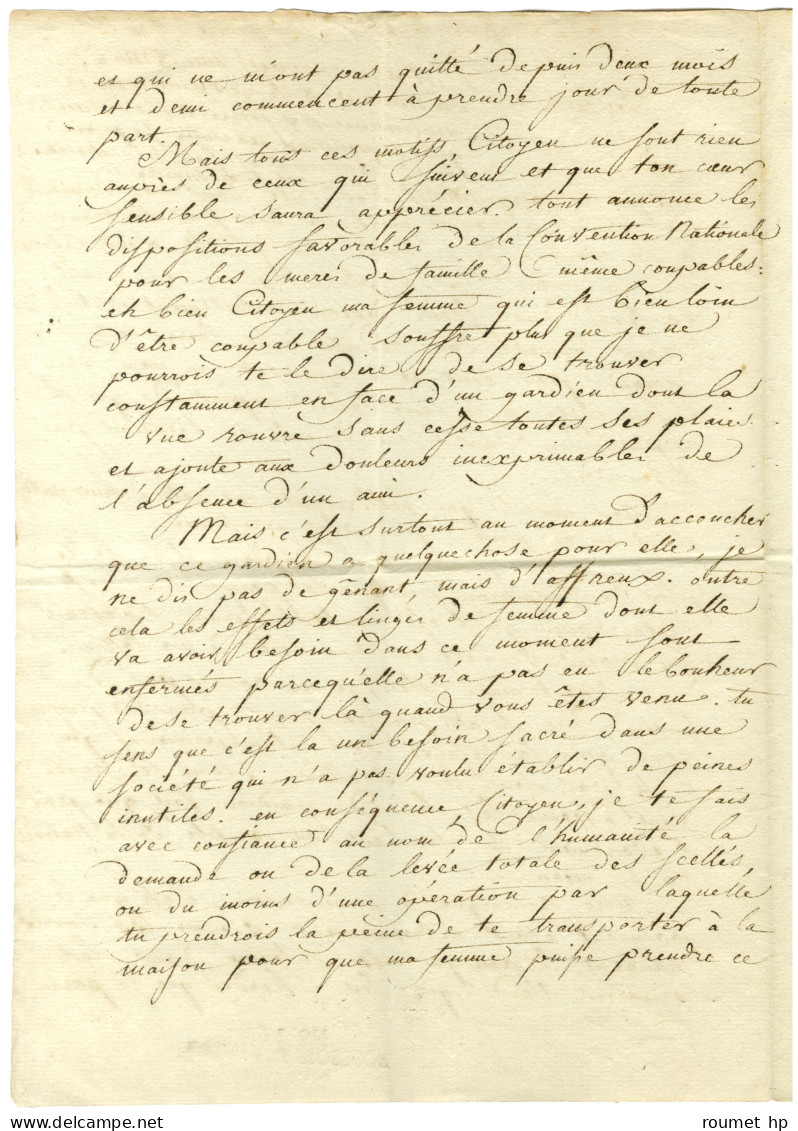 et qui ne m'ont pas quitté depuis deux mois
et demi commencent à prendre jour de toute
part.
Mais tous ces motifs Citoyen ne sont rien
auprès de ceux qui suivent et que ton cœur
sensible saura apprécier. tout annonce les
dispositions favorables de la Convention Nationale
pour les meres de famille même coupables:
eh bien Citoyen ma femme qui est bien loin
d'être coupable souffre plus que je ne
pourrois te le dire de se trouver
constamment en face d'un gardien dont la
vue rouvre sans cesse toutes ses plaies
et ajoute aux douleurs inexprimables de
l'absence d'un ami.
Mais c'est surtout au moment d'accoucher
que ce gardien a quelquechose pour elle, je
ne dis pas de gênant, mais d'affreux. outre
cela les effets et linges de femme dont elle
va avoir besoin dans ce moment sont
enfermés parcequ'elle n'a pas eu le bonheur
de se trouver là quand vous êtes venu. tu
sens que c'est la un besoin sacré dans une
société qui n'a pas voulu établir de peines
inutiles. en conséquence, Citoyen, je te fais
avec confiance au nom de l'humanité la
demande ou de la levée totale des scellés,
ou du moins d'une opération par laquelle
tu prendrois la peine de te transporter à la
maison pour que ma femme puisse prendre ce
roumet hp